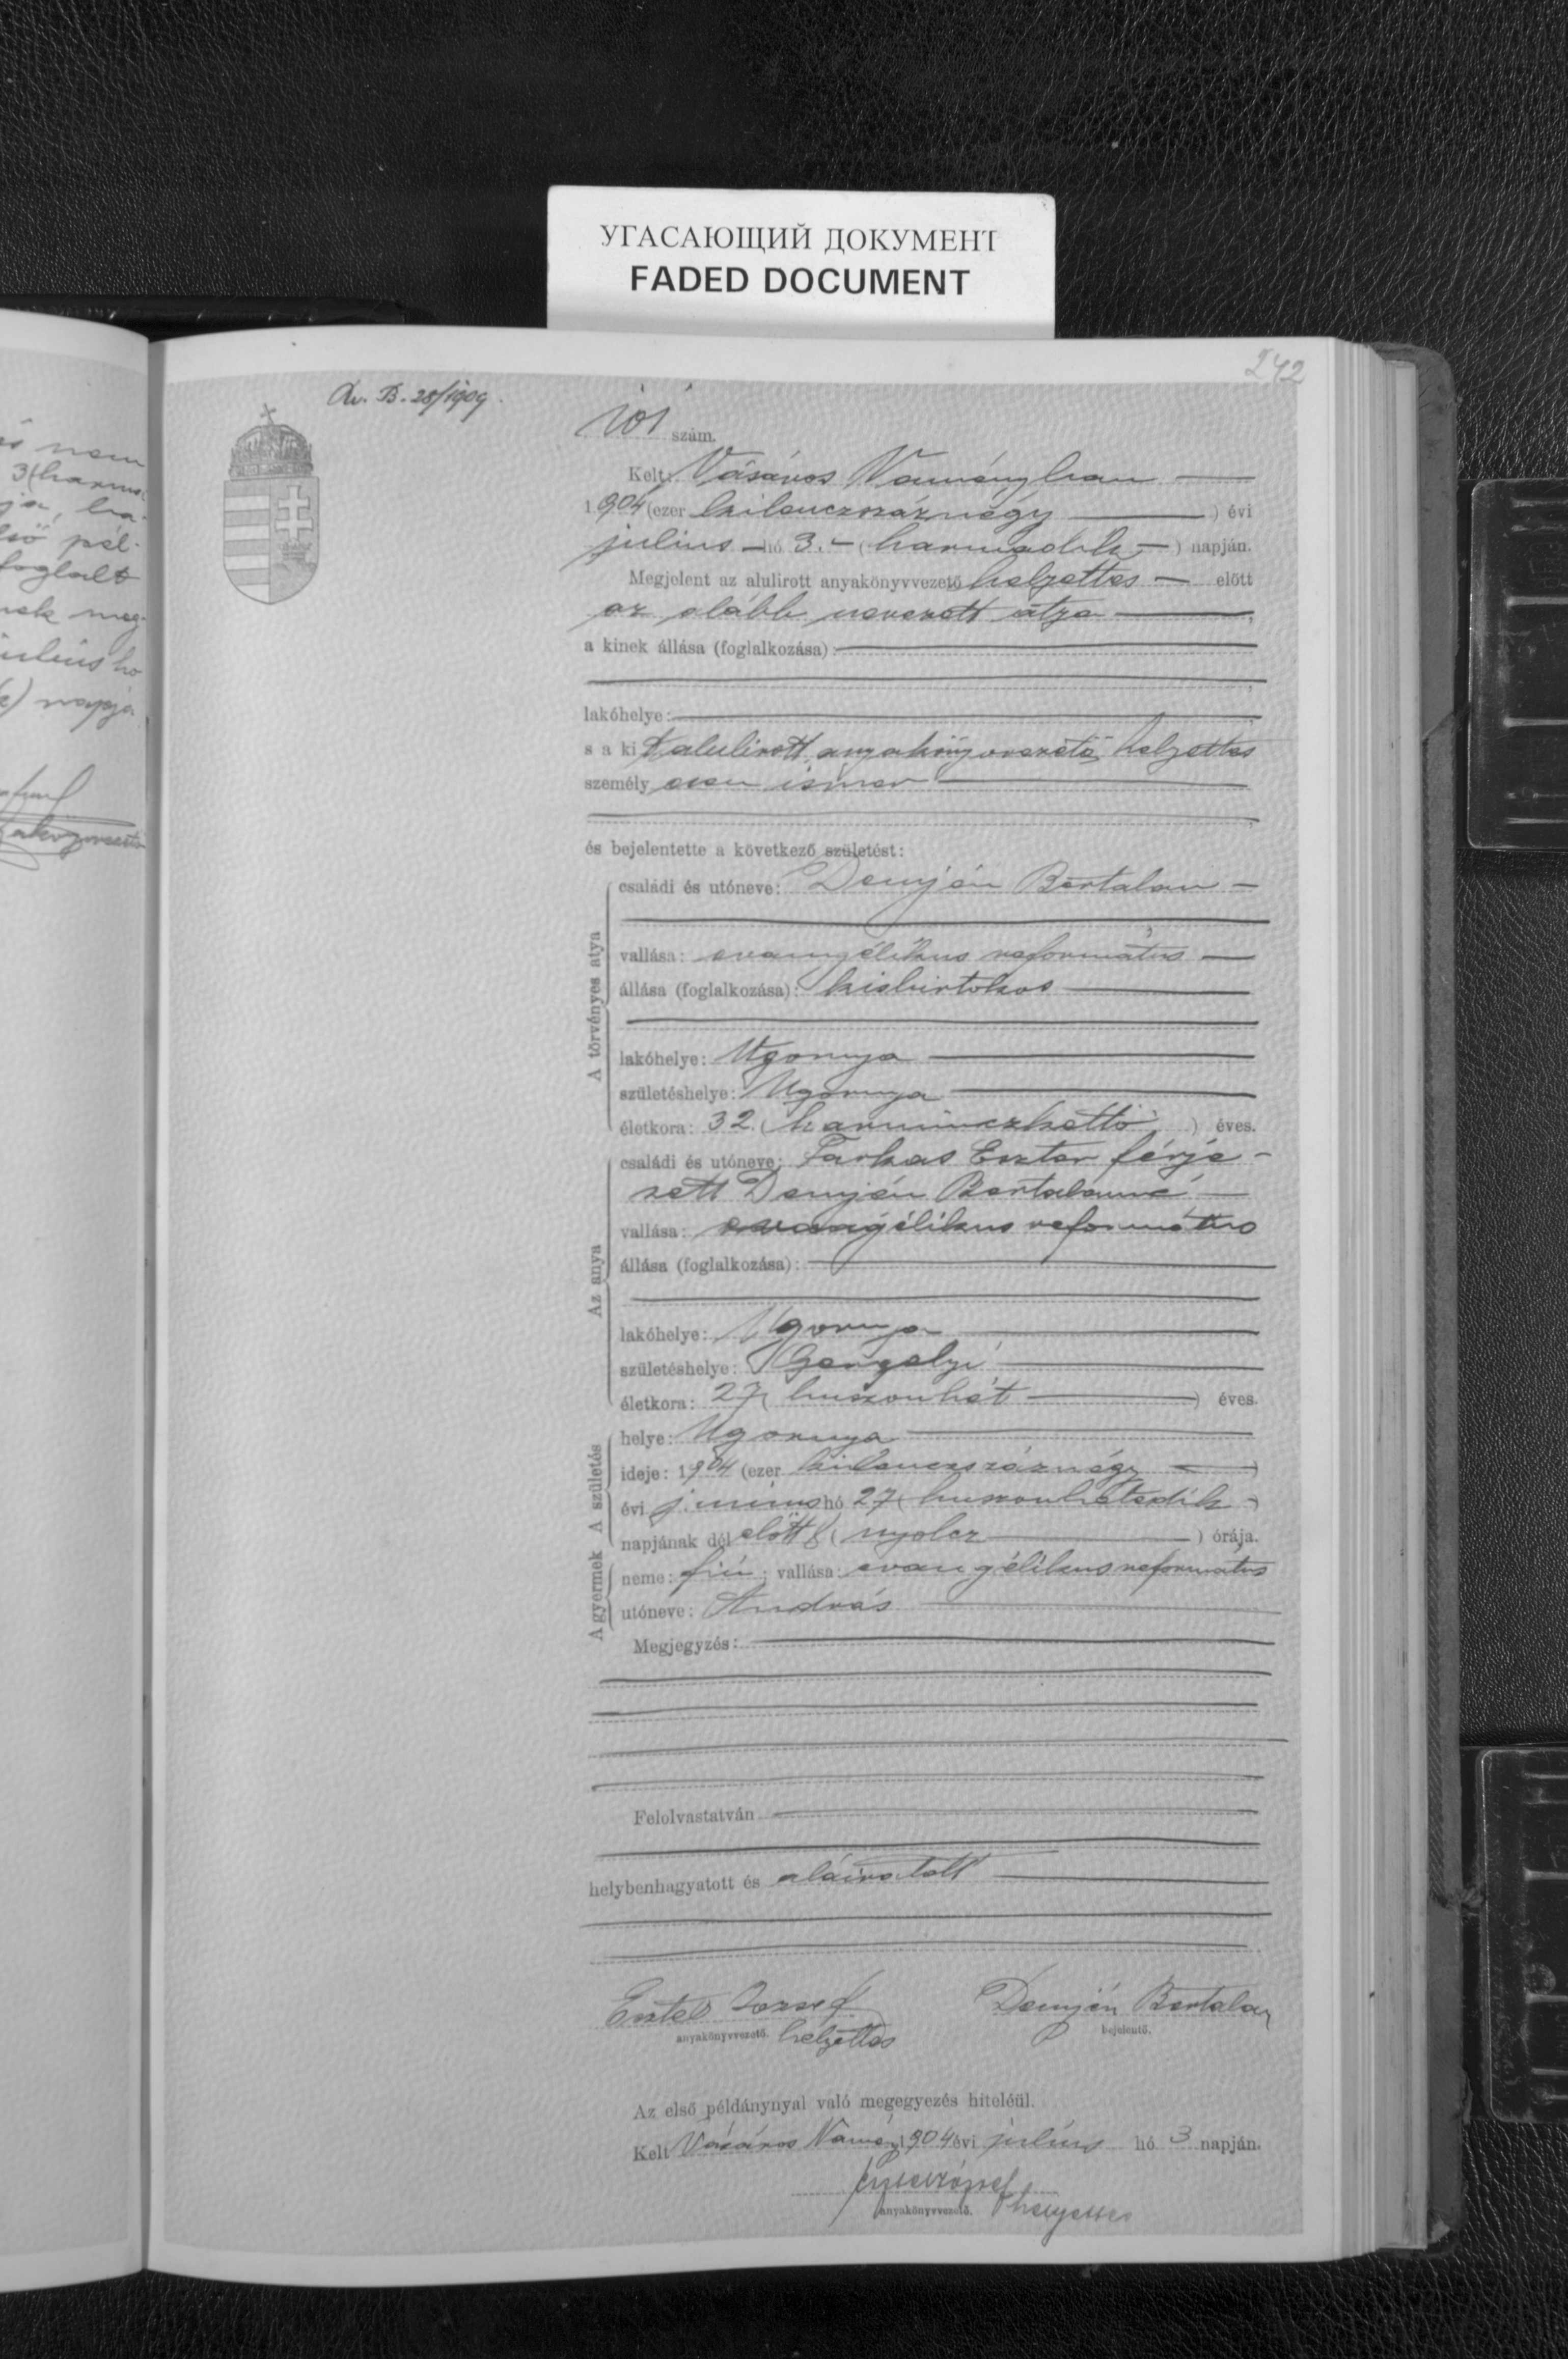 УГАСАЮЩИЙ ДОКУМЕНТ
FADED DOCUMENT
242
B. 28/1909.
101 szám.
Kelt: Vásáros Naményban
1904 (ezer kilenczszáznégy) évi
julius hó 3. (harmadik) napján.
Megjelent az alulirott anyakönyvvezető helyettes előtt
az alább nevezett atya,
a kinek állása (foglalkozása):
lakóhelye:
s a kit alulirott anyakönyvvezető helyettes
személyesen ismer
és bejelentette a következő születést:
A törvényes atya
családi és utóneve: Demjén Bertalan
vallása: evangélikus református
állása (foglalkozása): kisbirtokos
lakóhelye: Ugornya
születéshelye: Ugornya
életkora: 32 (harminczkettő) éves.
Az anya
családi és utóneve: Farkas Eszter férje-
zett Demjén Bertalanné
vallása: evangélikus református
állása (foglalkozása):
lakóhelye: Ugornya
születéshelye: Gergelyi
életkora: 27 (huszonhét) éves.
A születés
helye: Ugornya
ideje: 1904 (ezer kilenczszáznégy)
évi junius hó 27 (huszonhetedik)
napjának dél előtt 8 (nyolcz) órája.
A gyermek
neme: fiú; vallása: evangélikus református
utóneve: András
Megjegyzés:
Felolvastatván
helybenhagyatott és aláiratott
József Demjén Bertalan
anyakönyvvezető. helyettes bejelentő.
Az első példánynyal való megegyezés hiteléül.
Kelt Vásáros Namény 1904 évi július hó 3 napján.
anyakönyvvezető. helyettes
3 (harma
ja, ha-
lső pél-
foglalt
nek meg-
július hó
napjá